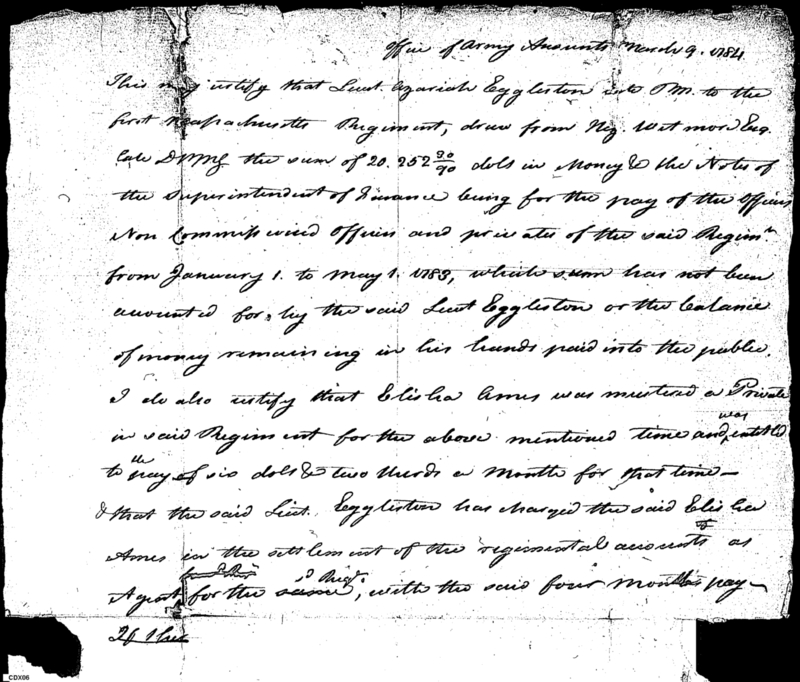 Office of Army Accounts March 9. 1784
This may certify that Lieut Azariah Eggleston late P.M. to the
first Massachusetts Regiment, drew from Wetmore Esq.
late DPMG the sum of 20.252 30/90 dols in Money & the Notes of
the Superintendent of Finance being for the pay of the Officers
Non Commissioned Officers and privates of the said Regimt.
from January 1. to May 1. 1783, which sum has not been
accounted for, by the said Lieut Eggleston or the balance
of money remaining in his hands paid into the public.
I do also certify that Elisha Ames was mustered a Private
was
in said Regiment for the above mentioned time and, entitled
to the pay of six dols & two thirds a Month for that time—
& that the said Lieut. Eggleston has charged the said Elisha
Ames in the settlement of the regimental accounts as
Agent for the same, with the said four months pay—
sd Regt.
CDX06